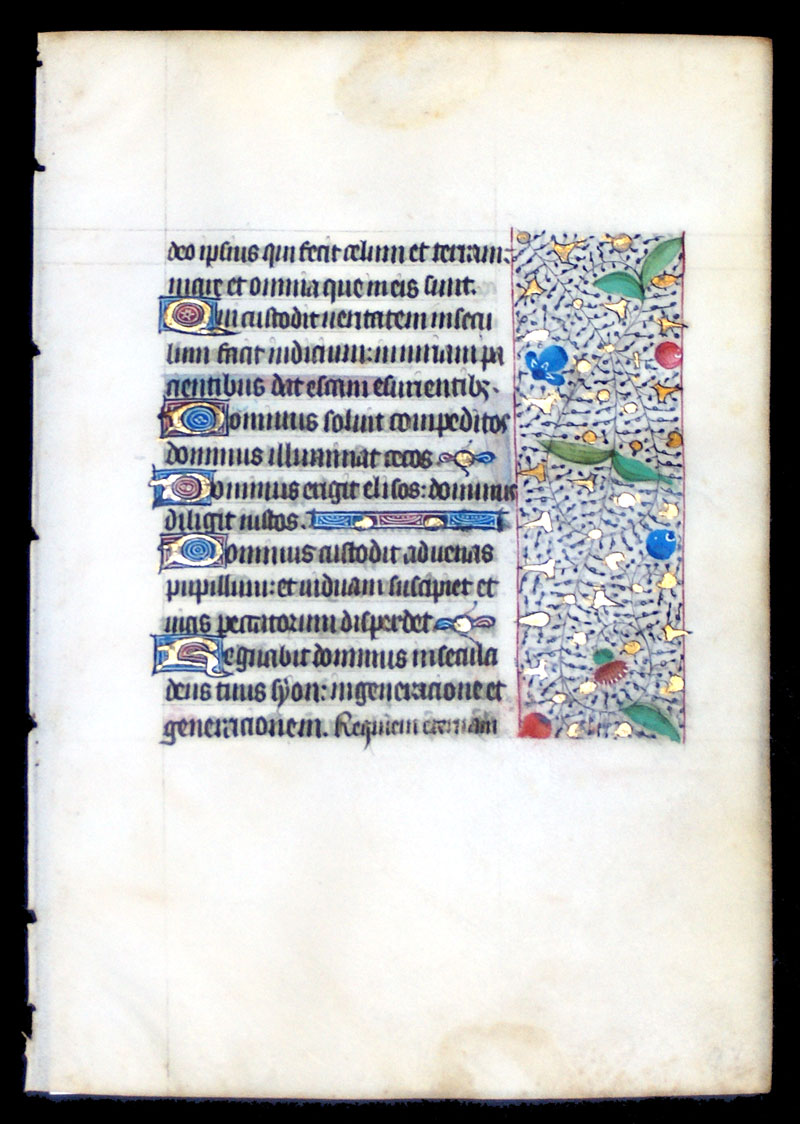 deo ipsius qui fecit celum et terram:
mare et omnia que in eis sunt.
Qui custodit ueritatem in secu
lum facit iudicium: iniuriam pa
cientibus dat escam esurientibz.
Dominus soluit compeditos
dominus illuminat cecos
Dominus erigit elisos: dominus
diligit iustos.
Dominus custodit aduenas
pupillum: et uiduam suscipiet et
uias peccatorum disperdet
Regnabit dominus in secula
deus tuus syon: in generacione et
generacionem. Requiem eternam